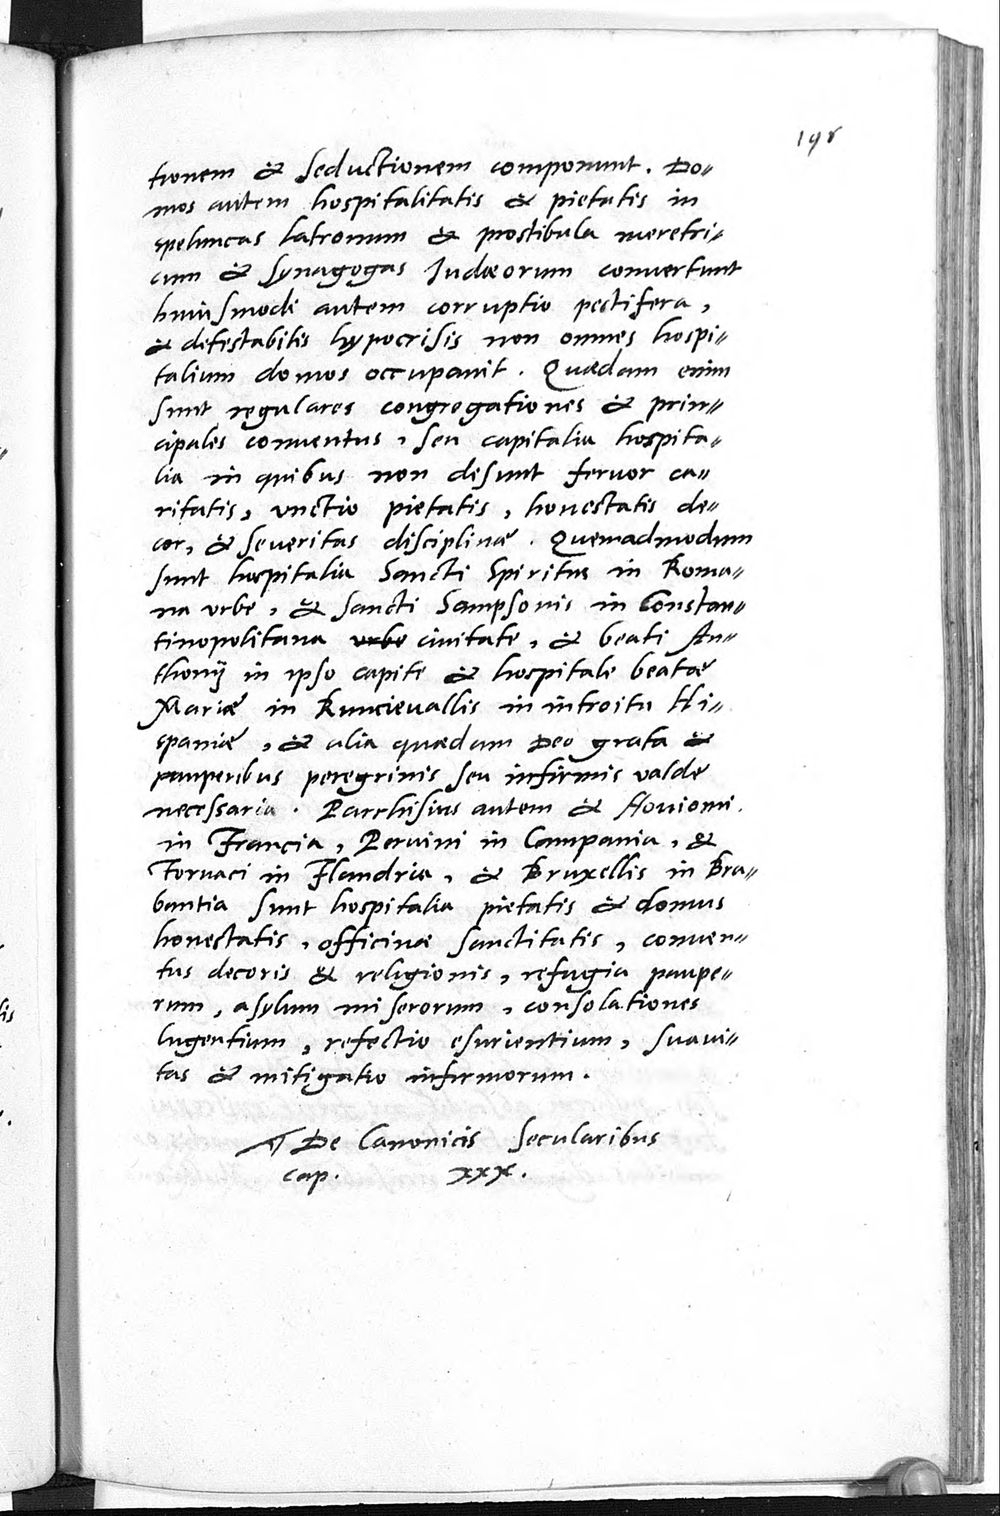 198
tionem & seductionem componunt. Do=
mos autem hospitalitatis & pietatis in
speluncas latronum & prostibula meretri=
cum & Synagogas Iudæorum convertunt
huiusmodi autem corruptio pestifera,
& detestabilis hypocrisis non omnes hospi=
talium domos occupavit. Quædam enim
sunt regulares congregationes & prin=
cipales conventus, seu capitalia hospita=
lia in quibus non desunt fervor ca=
ritatis, unctio pietatis, honestatis de=
cor, & severitas disciplinæ. Quemadmodum
sunt hospitalia Sancti Spiritus in Roma=
na urbe, & Sancti Sampsonis in Constan=
tinopolitana urbe civitate, & beati An=
thonij in ipso capite & hospitale beatæ
Mariæ in Runcievallis in introitu Hi=
spaniæ, & alia quædam Deo grata &
pauperibus peregrinis seu infirmis valde
necessaria. Parrhisius autem & Noviomi.
in Francia, Pervini in Campania, &
Tornaci in Flandria, & Bruxellis in Bra=
bantia sunt hospitalia pietatis & domus
honestatis, officinæ sanctitatis, conven=
tus decoris & religionis, refugia paupe=
rum, asylum miserorum, consolationes
lugentium, refectio esurientium, suavi=
tas & mitigatio infirmorum.
¶ De Canonicis Secularibus
cap. xxx.